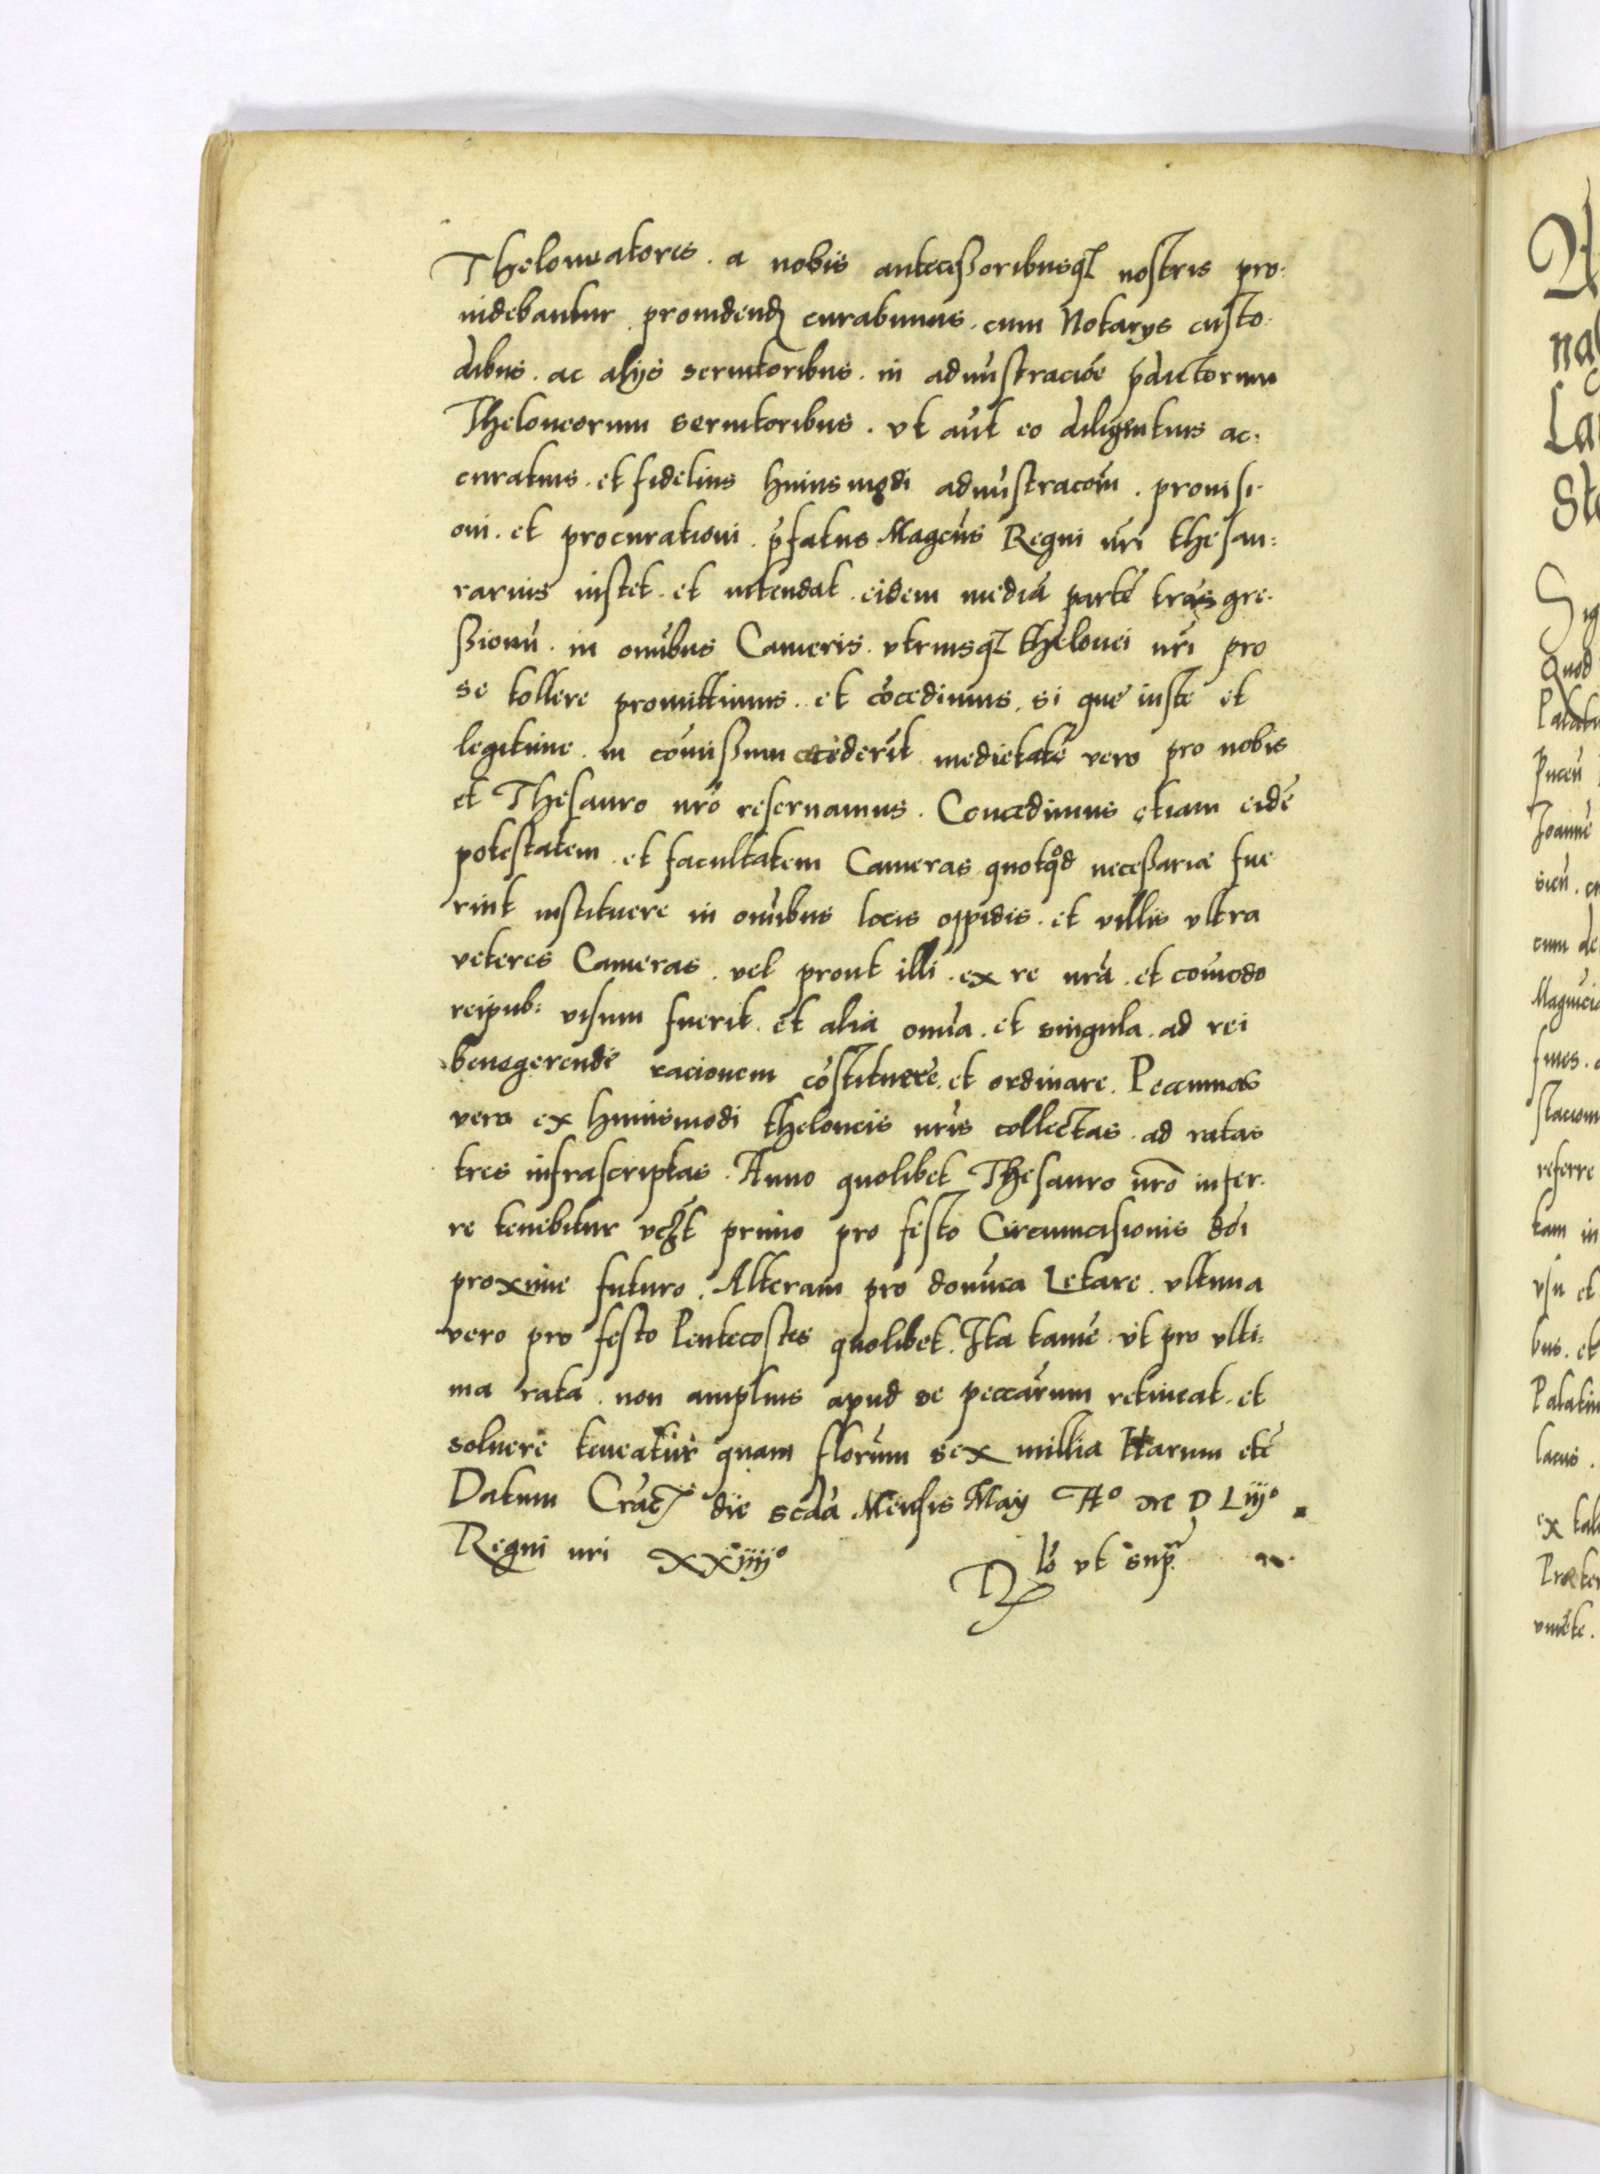 Theloneatores . a nobis antecessoribusq₃ nostris pro-
uidebantur prouidend curabimus . cum Notarys custo-
dibus . ac alijs seruitoribus . in admĩstraciõe p̃dictorum
Theloneorum seruitoribus . vt aũt eo diligentius ac-
curatius . et fidelius huiusmodi admĩstracõni . prouisi-
oni . et procurationi . p̃fatus Magcũs Regni nr̃i thesau-
rarius instet . et intendat . eidem mediã partẽ trãsgre-
ssionũ . in oñibus Cameris . vtriusq₃ thelonei nr̃i pro
se tollere promittimus . et cõcedimus . si que iuste et
legitime . in cõmissum cẽciderĩt medietatẽ vero pro nobis
et Thesauro nr̃o reseruamus . Concedimus etiam eidẽ
potestatem . et facultatem Cameras quotqͦd necessariæ fue
rint instituere in oñibus locis oppidis . et villis vltra
veteres Cameras . vel prout illi . ex re nr̃a . et cõmodo
reipub: visum fuerit . et alia oñia . et singula . ad rei
benegerende racionem cõstituere . et ordinare . Peccunias
vero ex huiusmodi theloneis nr̃is collectas . ad ratas
tres infrascriptas . Anno quolibet Thesauro nr̃o infer-
re tenebitur vczt primo pro festo Circumcisionis dõi
proxime futuro . Alteram pro domĩca Letare . vltima
vero pro festo Pentecostes quolibet . Ita tamẽ . vt pro vlti-
ma rata . non amplius apud se peccãrum retineat . et
soluere teneatur quam florũm sex millia Harum etc̃
Datum Crac̃ die scdã Mensis Maij Aº M D Liijº .
Regni nri XXiiijº
Rlõ vt supª